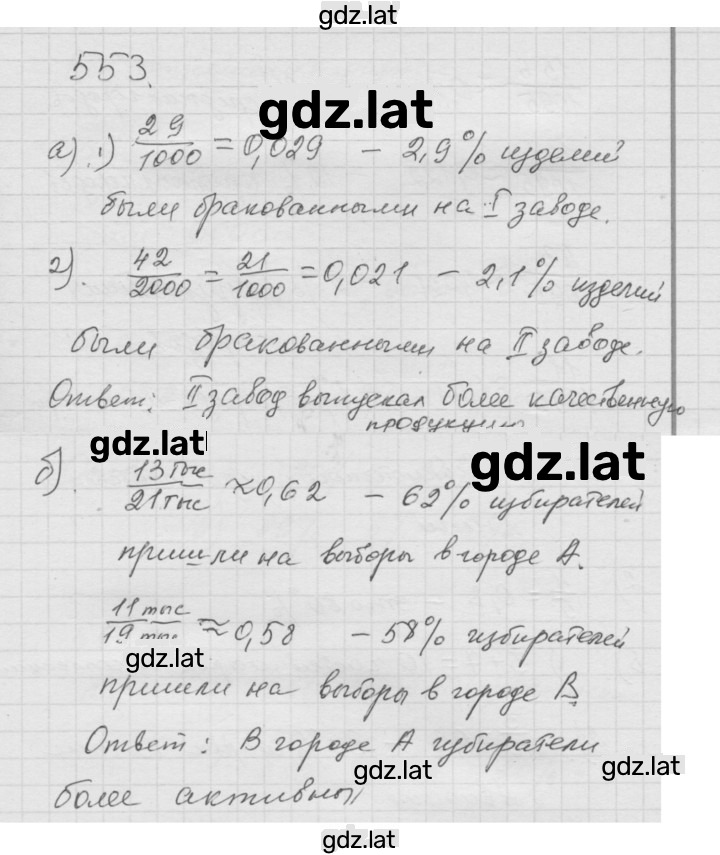 gdz.lat
553.
gdz.lat
а) 1) 29/1000 = 0,029 – 2,9% изделий
были бракованными на I заводе.
2). 42/2000 = 21/1000 = 0,021 – 2,1% изделий
были бракованными на II заводе.
Ответ: II завод выпускал более качественную
продукцию
gdz.lat
gdz.lat
б). 13 тыс/21 тыс ≈ 0,62 – 62% избирателей
пришли на выборы в городе А.
11 тыс/19 тыс. ≈ 0,58 – 58% избирателей
gdz.lat
пришли на выборы в городе В.
Ответ: В городе А избиратели
gdz.lat
gdz.lat
более активны
gdz.lat